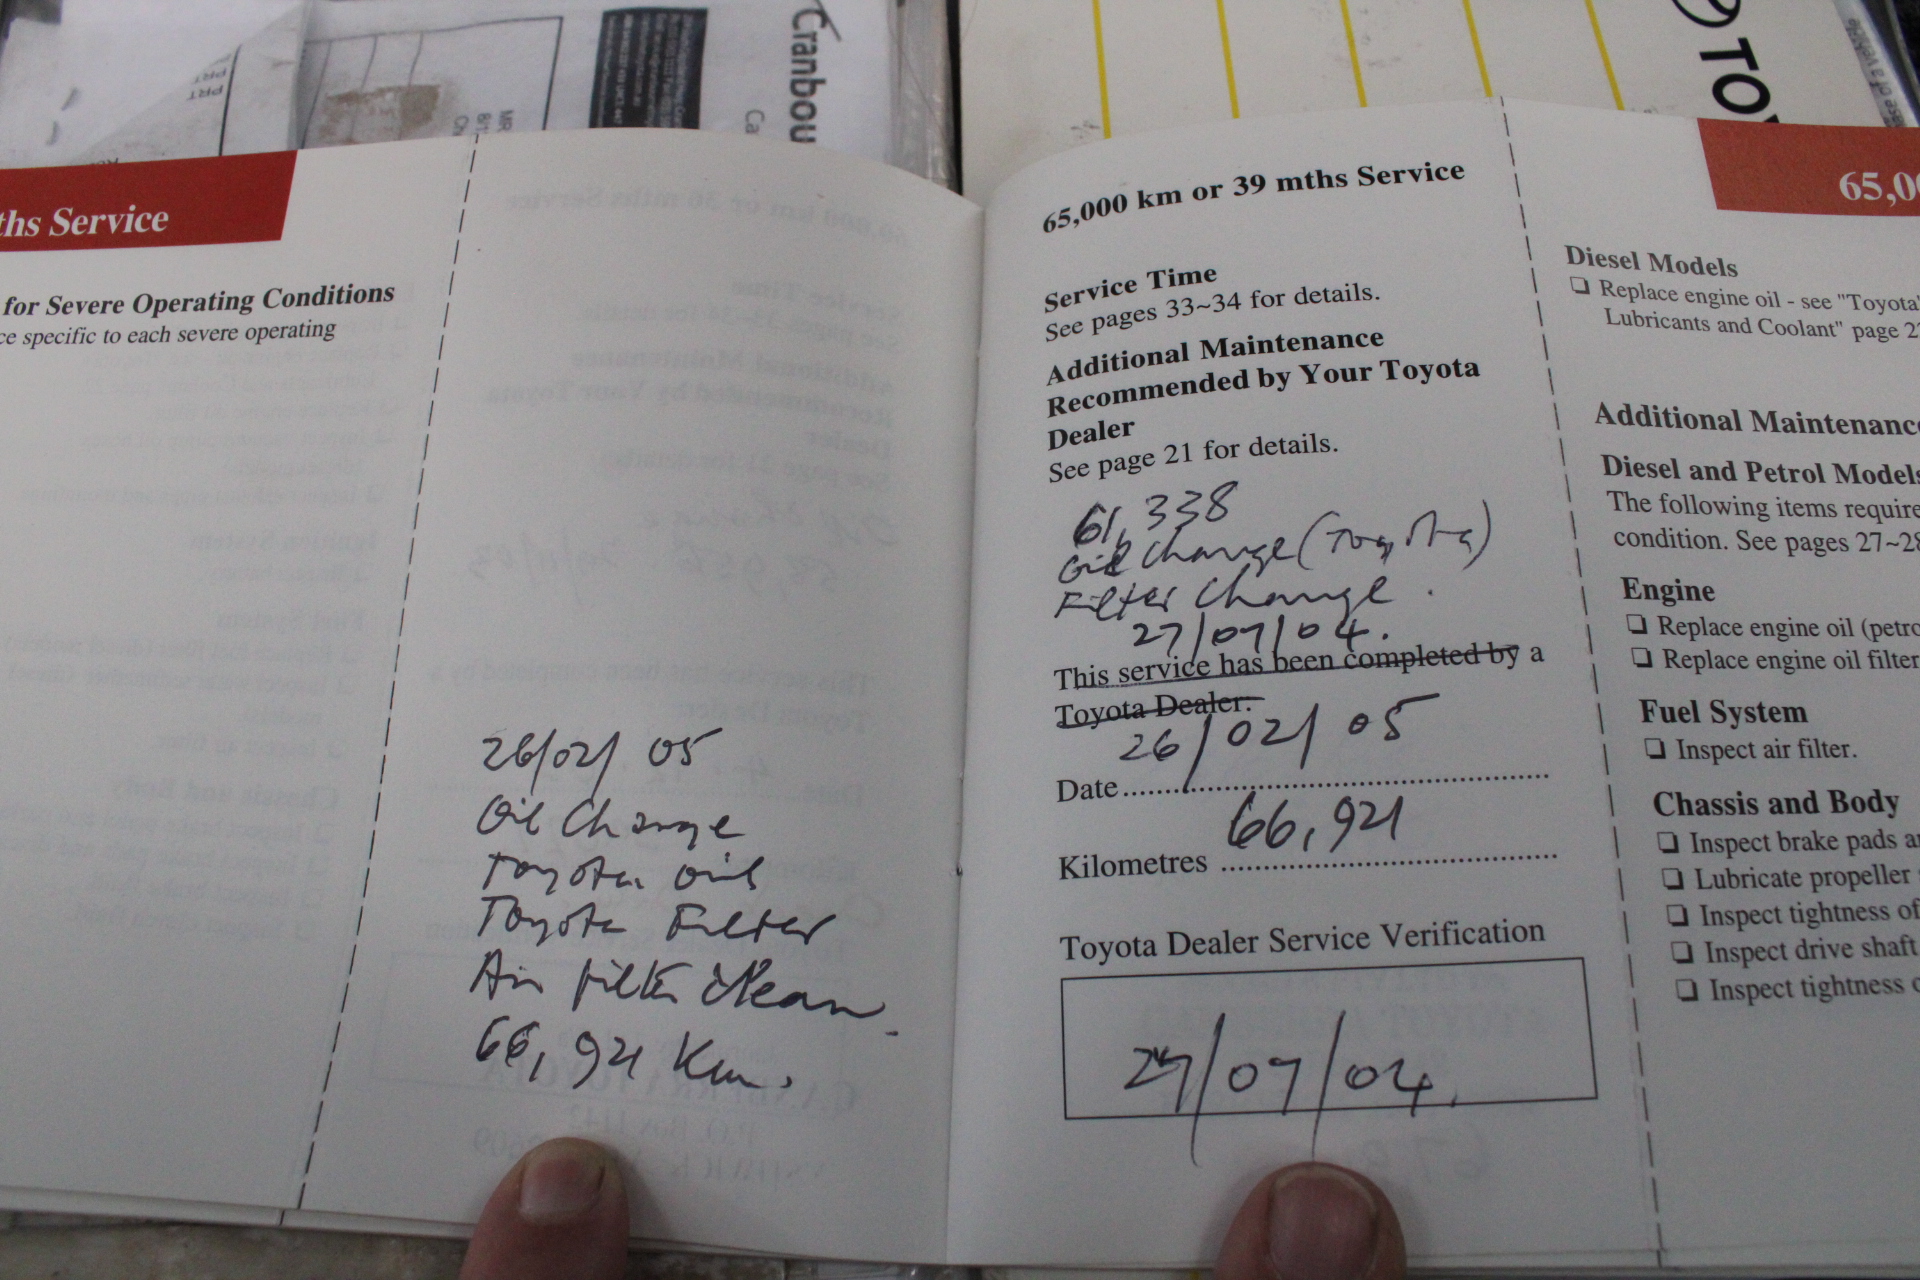 Cranbou
Ca
TOY
ths Service
for Severe Operating Conditions
ce specific to each severe operating
26/02/05
Oil Change
Toyota oil
Toyota Filter
Air filter clean
66,921 Km.
65,000 km or 39 mths Service
Service Time
See pages 33~34 for details.
Additional Maintenance
Recommended by Your Toyota
Dealer
See page 21 for details.
61,338
Oil change (Toyota)
Filter Change.
27/07/04.
This service has been completed by a
Toyota Dealer.
26/02/05
Date
66,921
Kilometres
Toyota Dealer Service Verification
27/07/04.
65,00
Diesel Models
❏ Replace engine oil - see "Toyota
Lubricants and Coolant" page 22
Additional Maintenance
Diesel and Petrol Models
The following items require
condition. See pages 27~28
Engine
❏ Replace engine oil (petro
❏ Replace engine oil filter
Fuel System
❏ Inspect air filter.
Chassis and Body
❏ Inspect brake pads an
❏ Lubricate propeller
❏ Inspect tightness of
❏ Inspect drive shaft
❏ Inspect tightness o